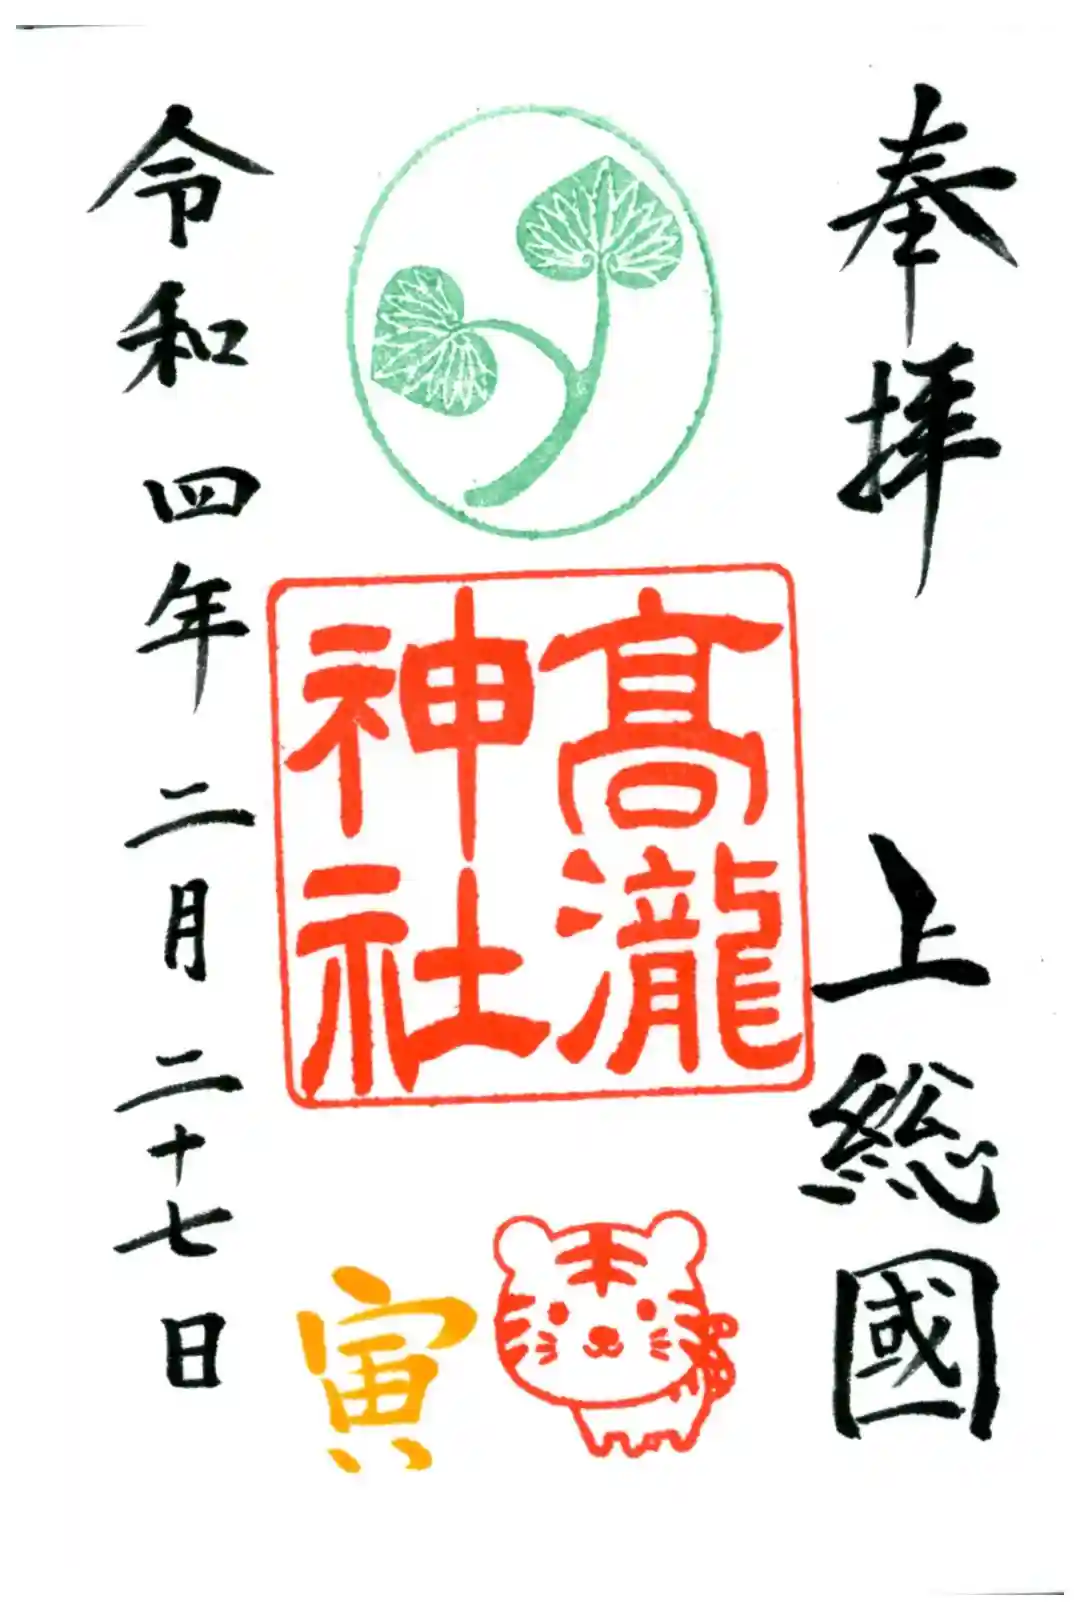 奉拝
上総國
髙瀧
神社
寅
令和四年二月二十七日